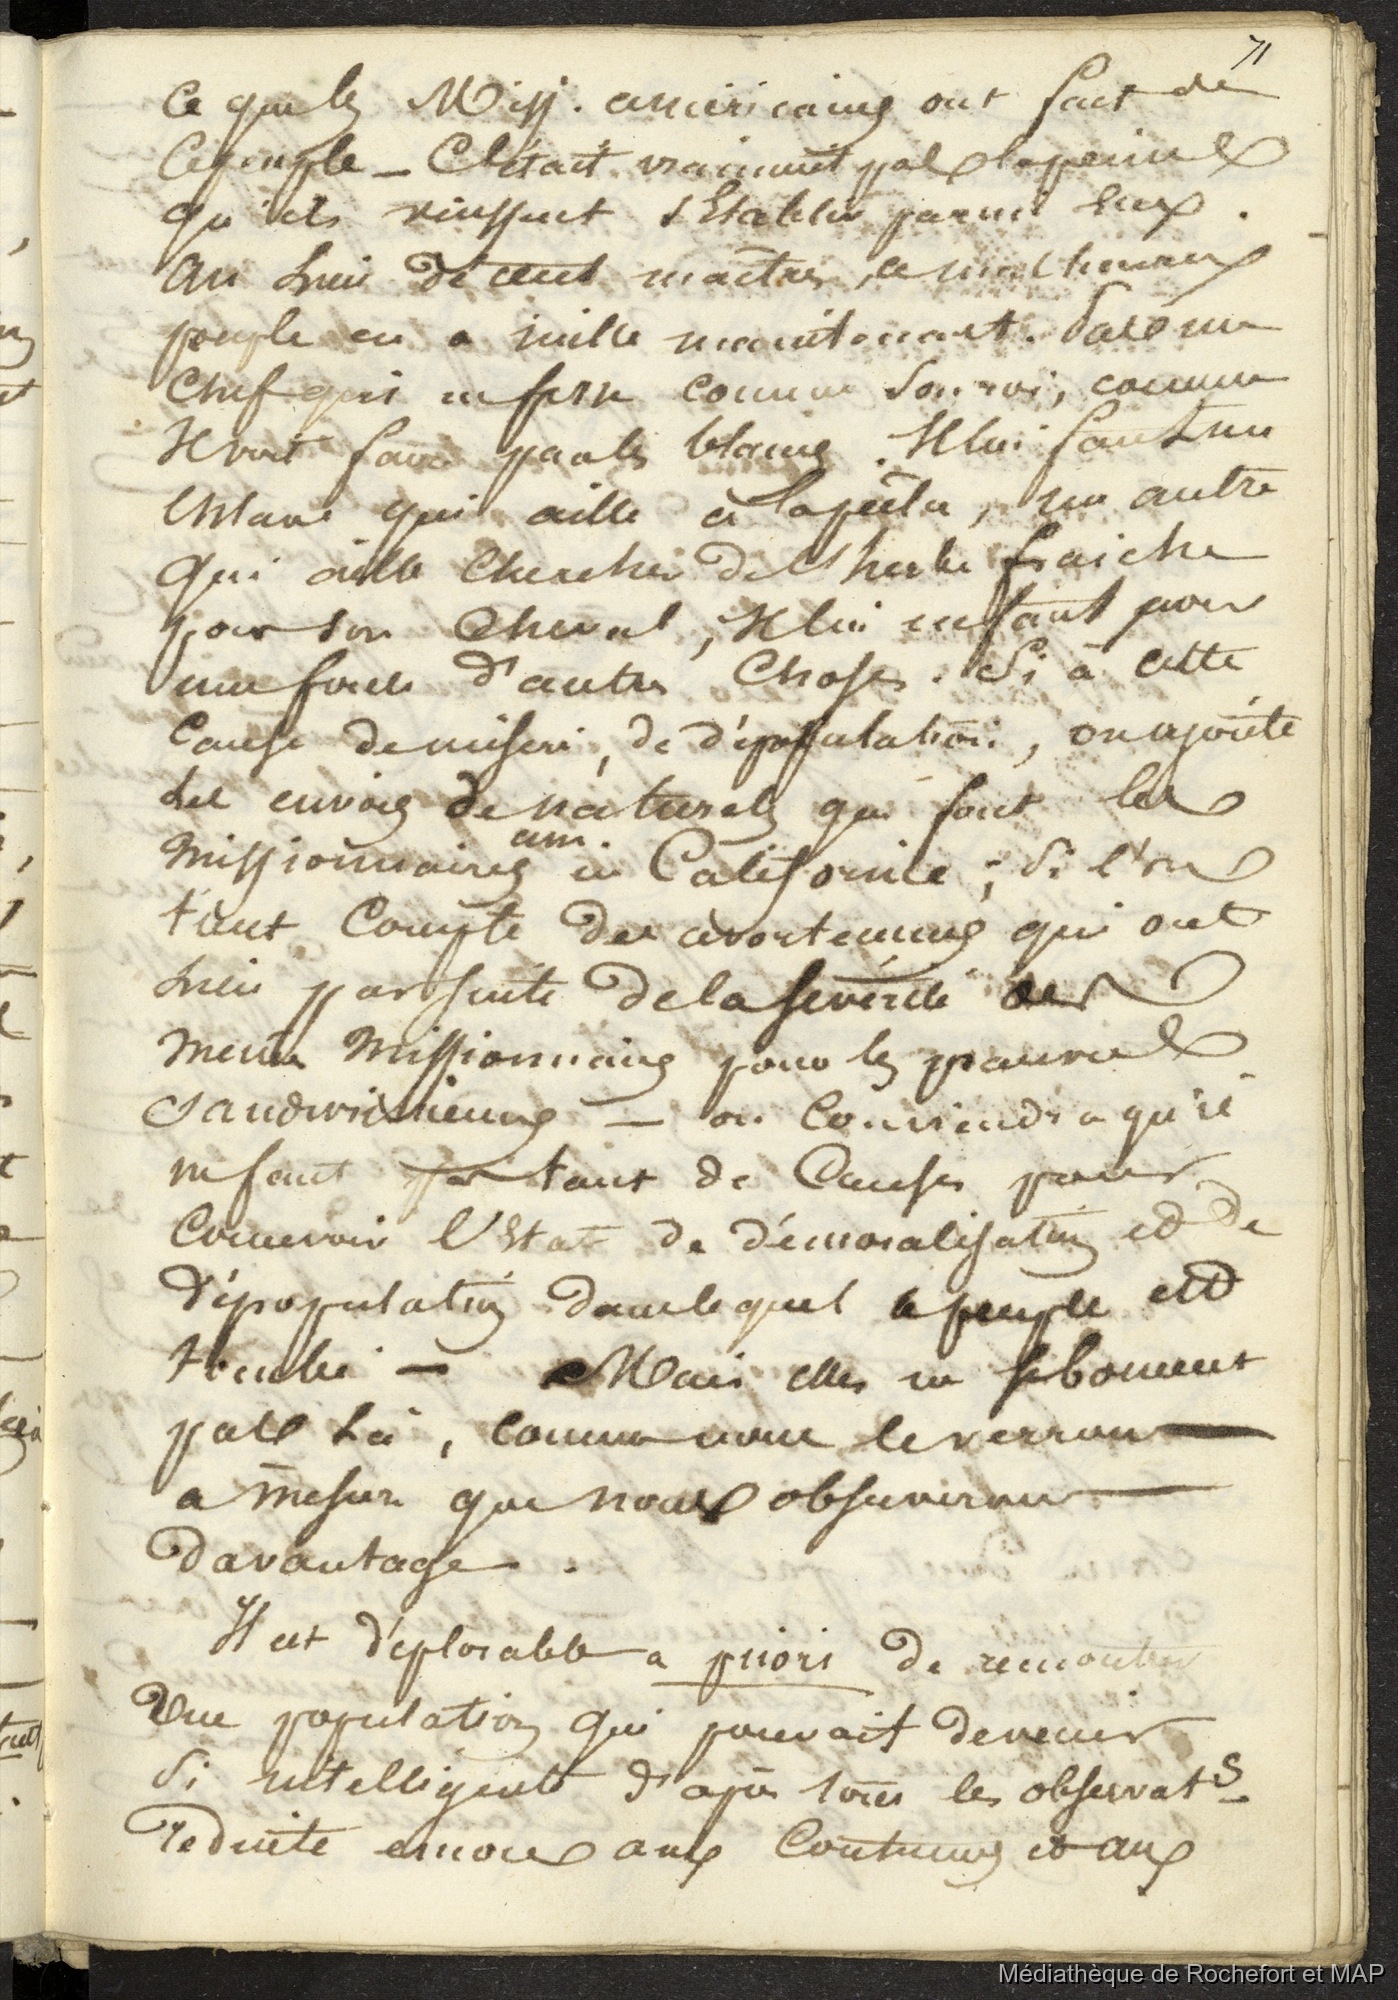 71
Ce que les Miss. américains ont fait de
Ce peuple — C'était vraiment pas la peine
qu'ils vinssent s'Etablir parmi eux.
Au lieu de cent maitres, ce malheureux
peuple en a mille maintenant. Pas un
Chef qui ne fasse comme son roi, comme
Il voit faire par les blancs. Il lui faut un
Esclave qui aille à la pêche, un autre
qui aille chercher de l'herbe fraiche
pour son cheval, Il lui en faut pour
une foule d'autres choses. Si à cette
Cause de misère, de dépopulation, on ajoute
les envois de naturels que font les
missionnaires am. en Californie ; Si l'on
tient Compte des avortemens qui ont
lieu par suite de la sévérité des
mêmes missionnaires pour les pauvres
Sandwichiennes — on Conviendra qu'il
ne faut pas tant de Causes pour
Concevoir l'Etat de démoralisation et de
dépopulation dans lequel le peuple est
tombé — Mais elles ne se bornent
pas là, comme nous le verrons
a mesure que nous observerons
davantage.
Il est déplorable a priori de rencontrer
Une population qui pouvait devenir
Si intelligente d'après tous les observat.s
reduite encore aux Coutumes et aux
Médiathèque de Rochefort et MAP